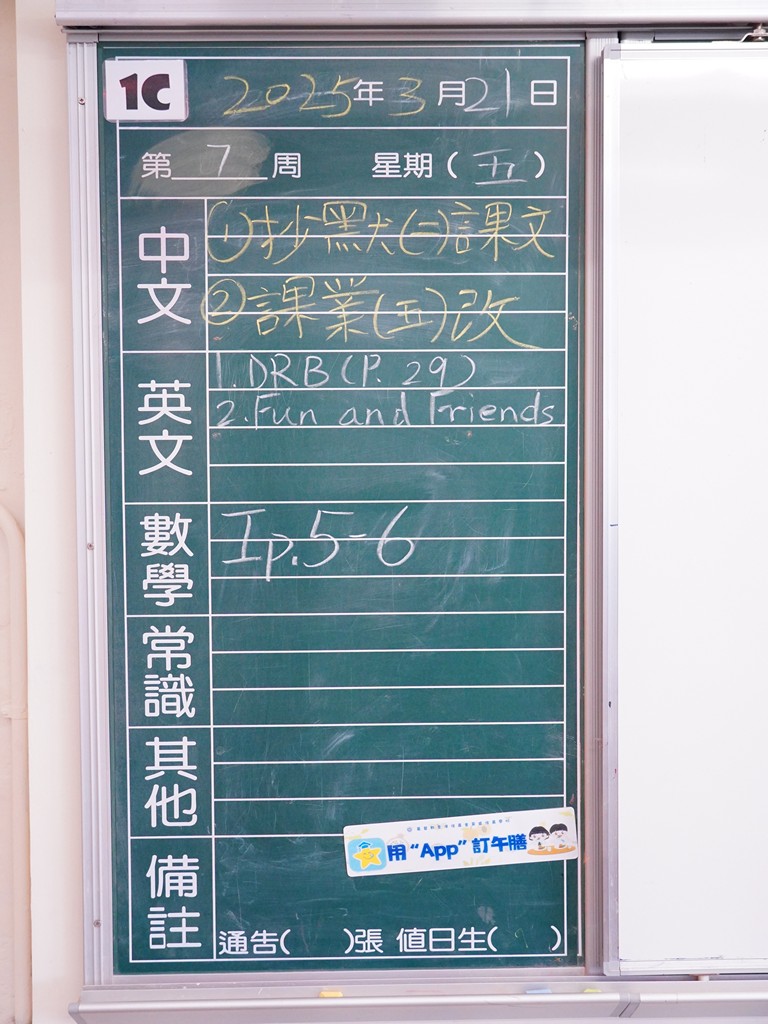 1C
2025年3月21日
第7周 星期(五)
中文
①抄默(二)課文
②課業(五)改
英文
1. DRB (P. 29)
2. Fun and Friends
數學
Ip.5-6
常識
其他
用“App”訂午膳
備註
通告( )張 值日生( )